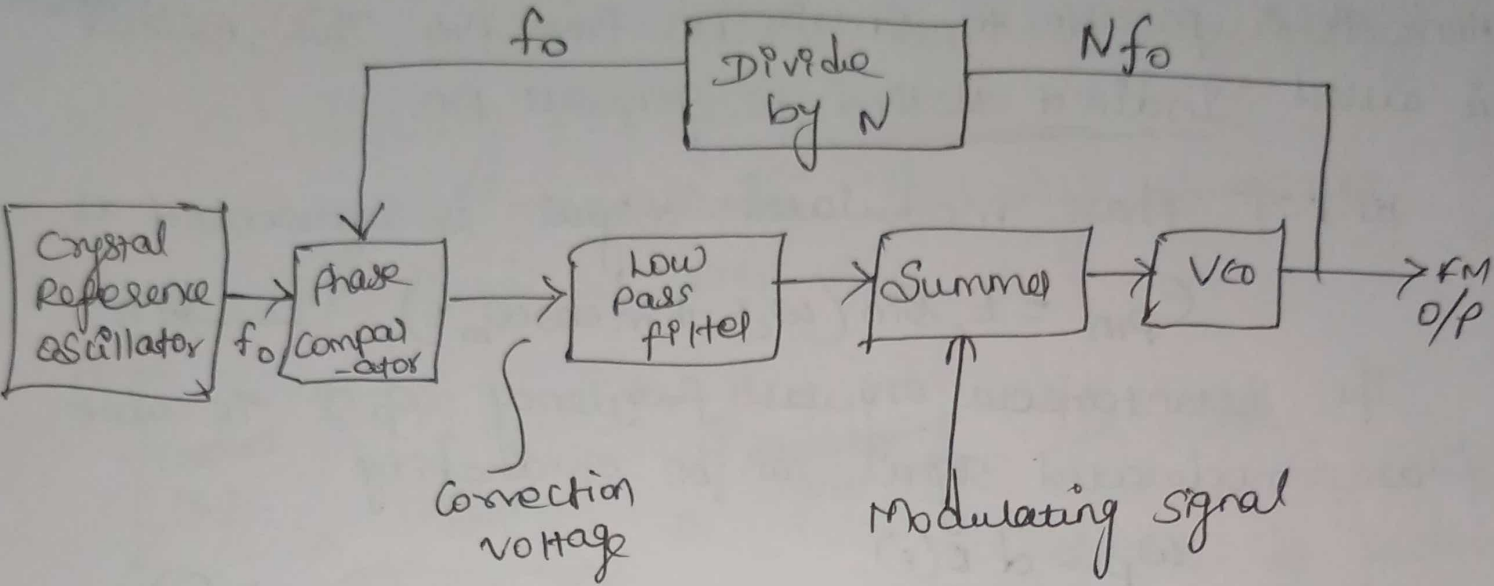 fo
Divide
by N
Nfo
Crystal
Reference
oscillator
fo
Phase
compar
-ator
Low
pass
filter
Summer
VCO
FM
O/P
Correction
voltage
Modulating signal